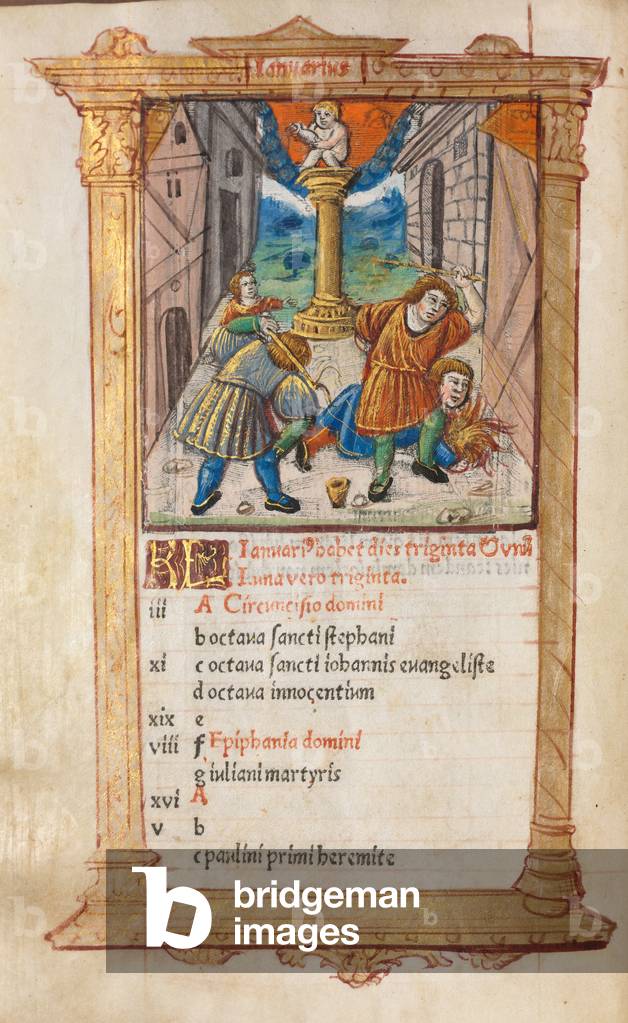 Ianuarius
KL Ianuariꝰ habet dies triginta Ovnū
Luna vero triginta.
iii A Circuncisio domini
b octaua sancti stephani
xi c octaua sancti iohannis euangeliste
d octaua innocentium
xix e
viii f Epiphania domini
g iuliani martyris
xvi A
v b
c paulini primi heremite
b bridgeman
images